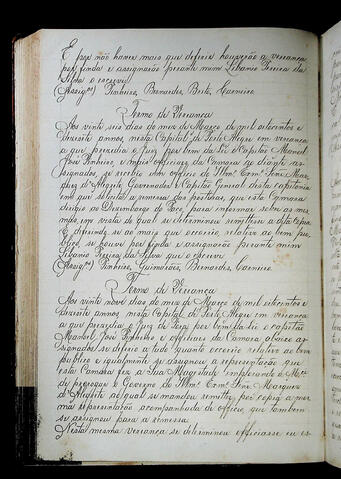 E por não haver mais que deferir houverão a vereança
por finda e assignarão perante mim Libanio Pereira da
Silva o escrevi
(Assigos) Pinheiro, Bernardes, Carneiro.
Termo de Vereança
Aos vinte seis dias do mez de Março de mil oitocentos e
dezisete annos, nesta Capital de Porto Alegre em vereança
a que presedio o Juiz por bem da Lei o Capitão Manoel
José Pinheiro, e mais officiaes da Camara ao diante as-
signados, se recebeo um officio do Illmo. Exmo. Snr. Mar-
quez de Alegrete Governador e Capitão General desta capitania
em que solicita a remessa das posturas, que esta Camara
dirigio ao Desembargo do Paço, para informar sobre as mes-
mas, em vista do qual se determinou remetter a dita copia
E deferindo se ao mais que occorrio, relativo ao bem pu-
blico, se houve por finda e assignarão perante mim
Libanio Pereira da Silva que o escrevi
(Assigos) Pinheiro, Guimarães, Bernardes, Carneiro.
Termo de Vereança
Aos vinte nove dias do mez de Março de mil oitocentos e
dezisete annos, nesta Capital de Porto Alegre em vereança
a que presedio o Juiz de Fora por bem da lei o capitão
Manoel José Pinheiro e officiaes da Camara abaixo as-
signados se deferio a tudo quanto occorrio relativo ao bem
publico e igualmente se assignou a representação que
esta Camara fez a Sua Magestade implorando a Mce.
de prorogar o Governo do Illmo. Exmo. Snr. Marquez
de Alegrete ao qual se mandou remetter por copia a mes-
ma representação acompanhada de officio, que tambem
se assignou para a remessa.
Nesta mesma vereança se determinou officiasse eu es-